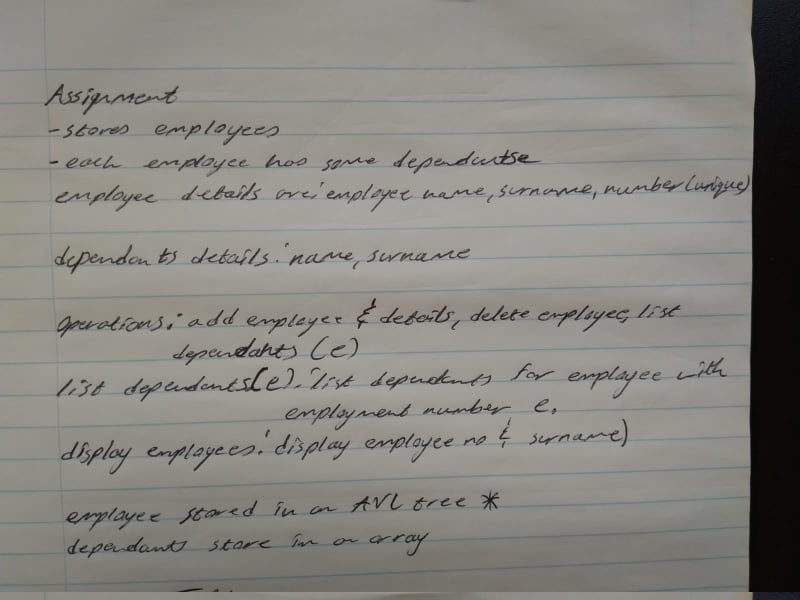 Assignment
- stores employees
- each employee has some dependants
employee details are: employee name, surname, number (unique)
dependants details: name, surname
operations: add employee & details, delete employee, list
dependants (e)
list dependants(e): list dependants for employee with
employment number e.
display employees: display employee no & surname)
employee stored in an AVL tree *
dependants store in an array